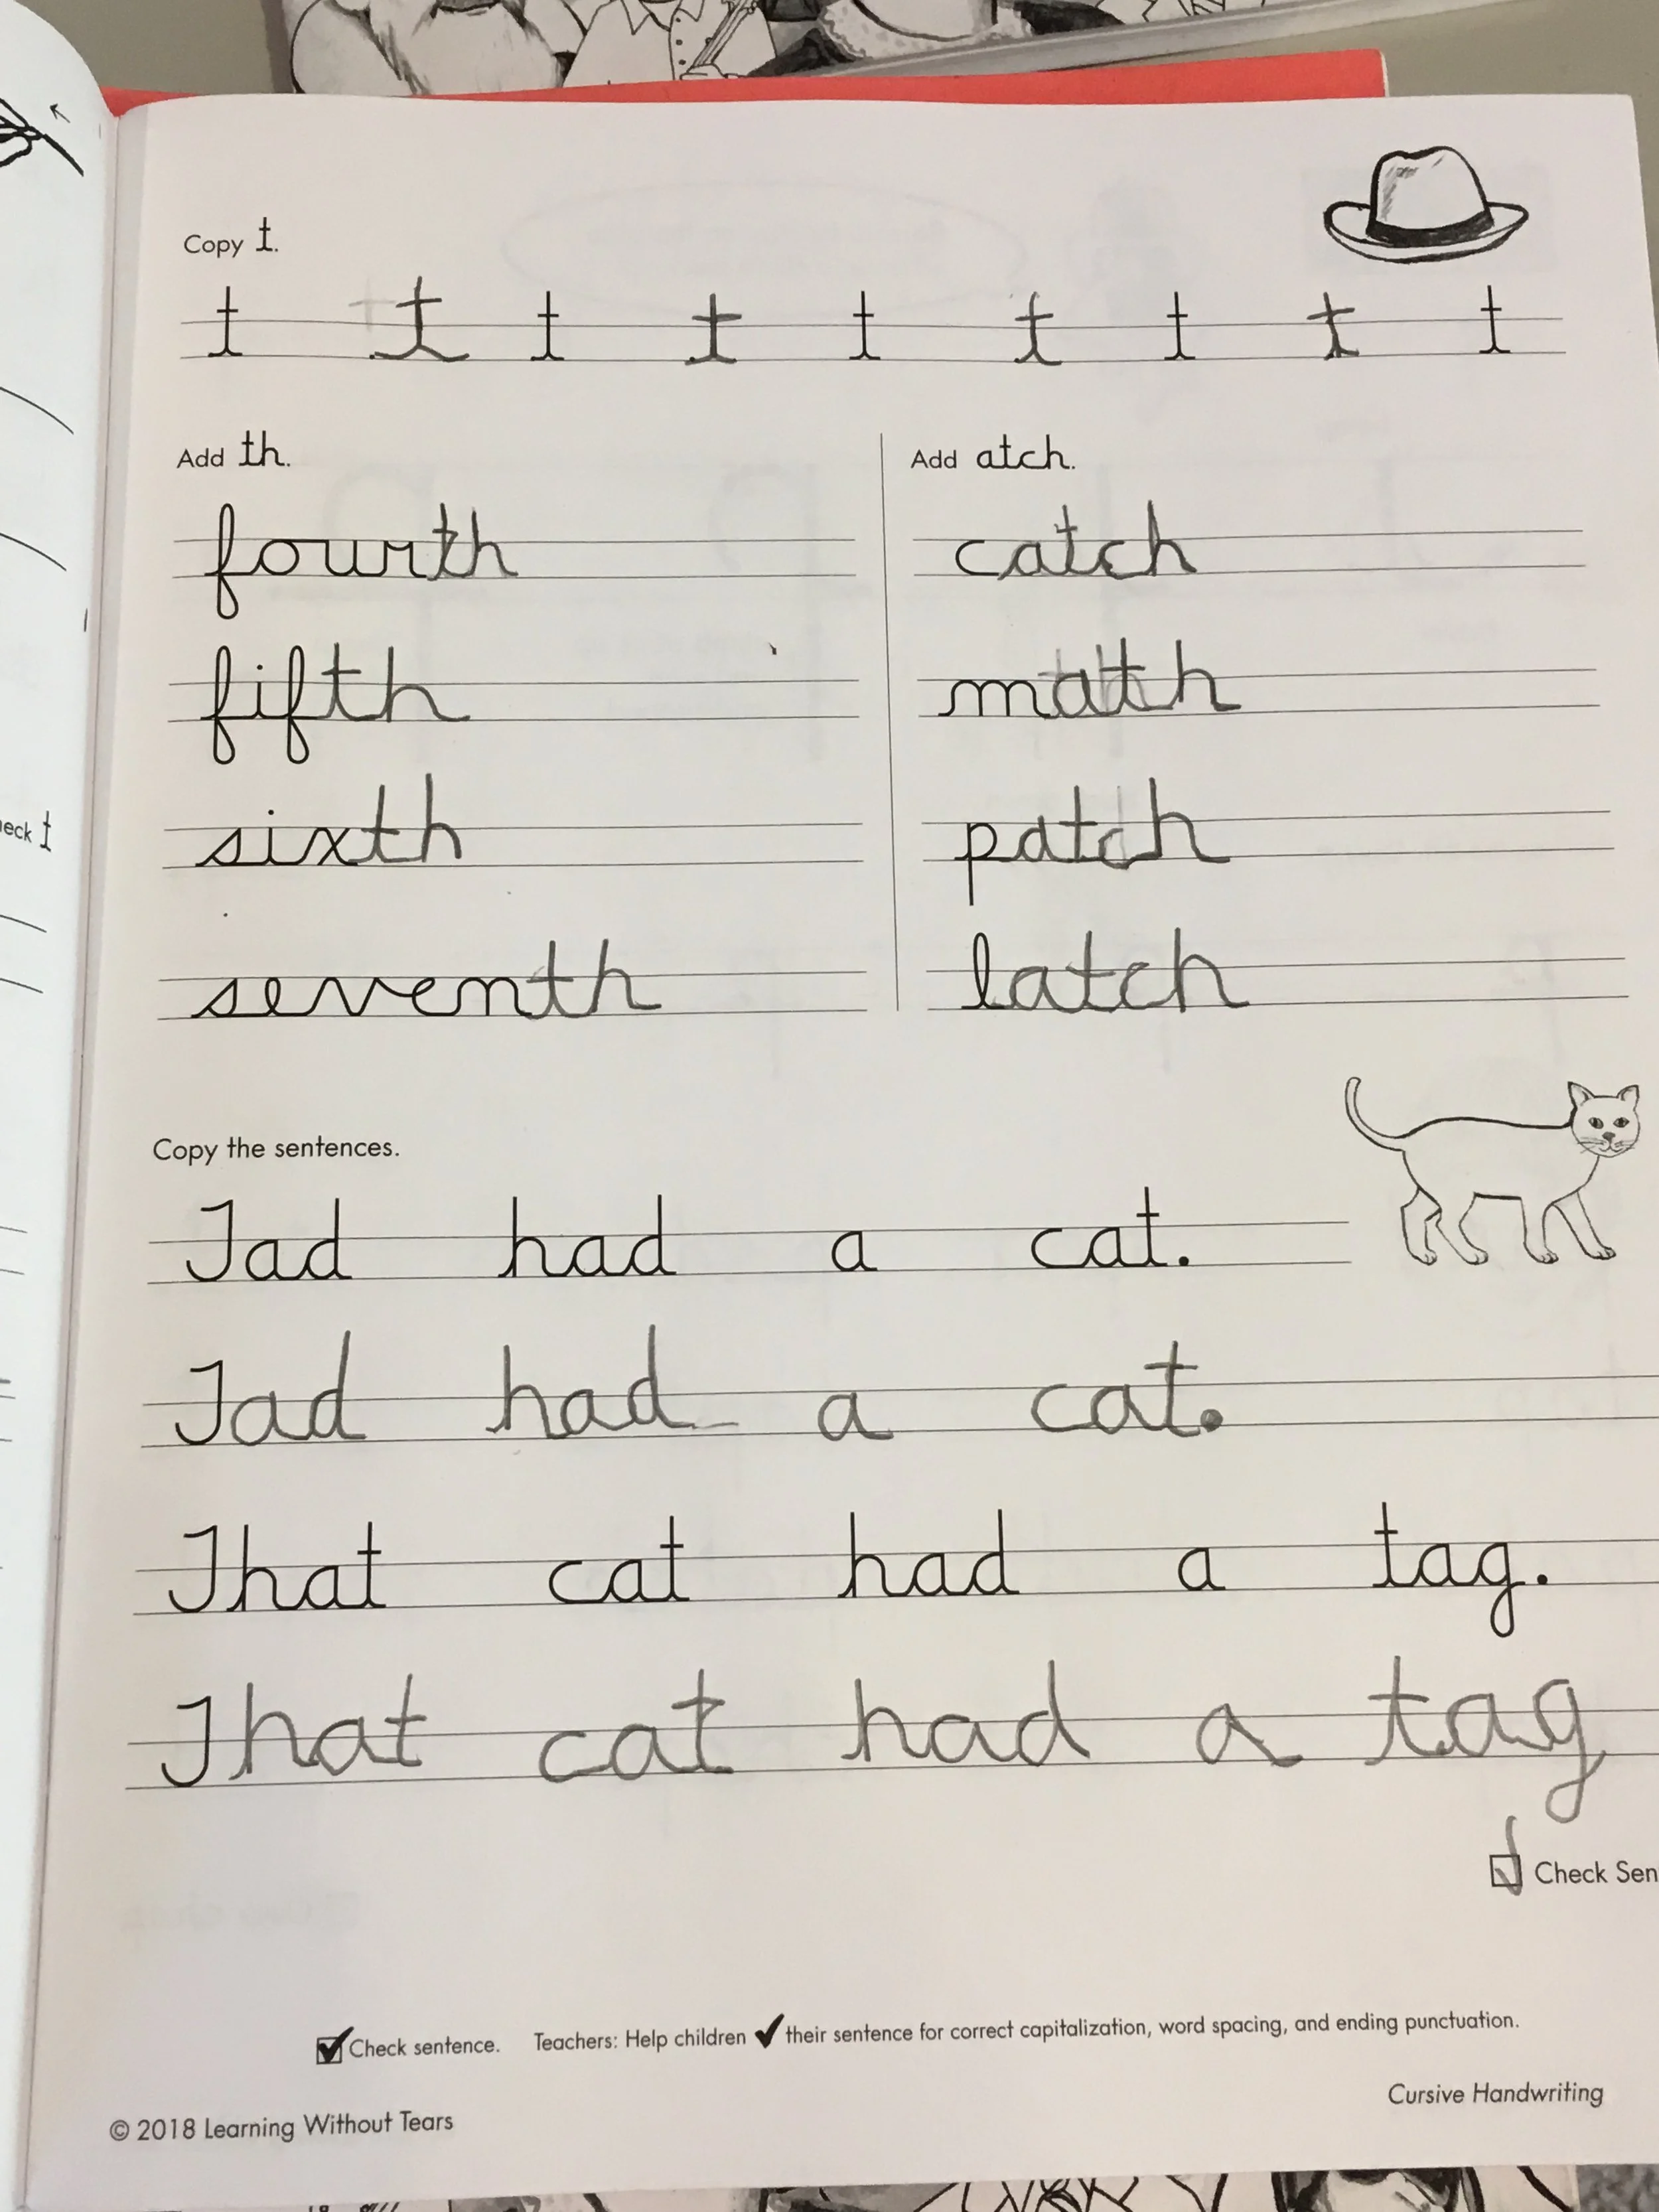 Copy t.
t t t t t t t t t
Add th.
fourth
fifth
sixth
seventh
Add atch.
catch
math
patch
latch
Copy the sentences.
Tad had a cat.
Tad had a cat.
That cat had a tag.
That cat had a tag
Check Sen
Check sentence. Teachers: Help children ✓ their sentence for correct capitalization, word spacing, and ending punctuation.
Cursive Handwriting
© 2018 Learning Without Tears
eck t